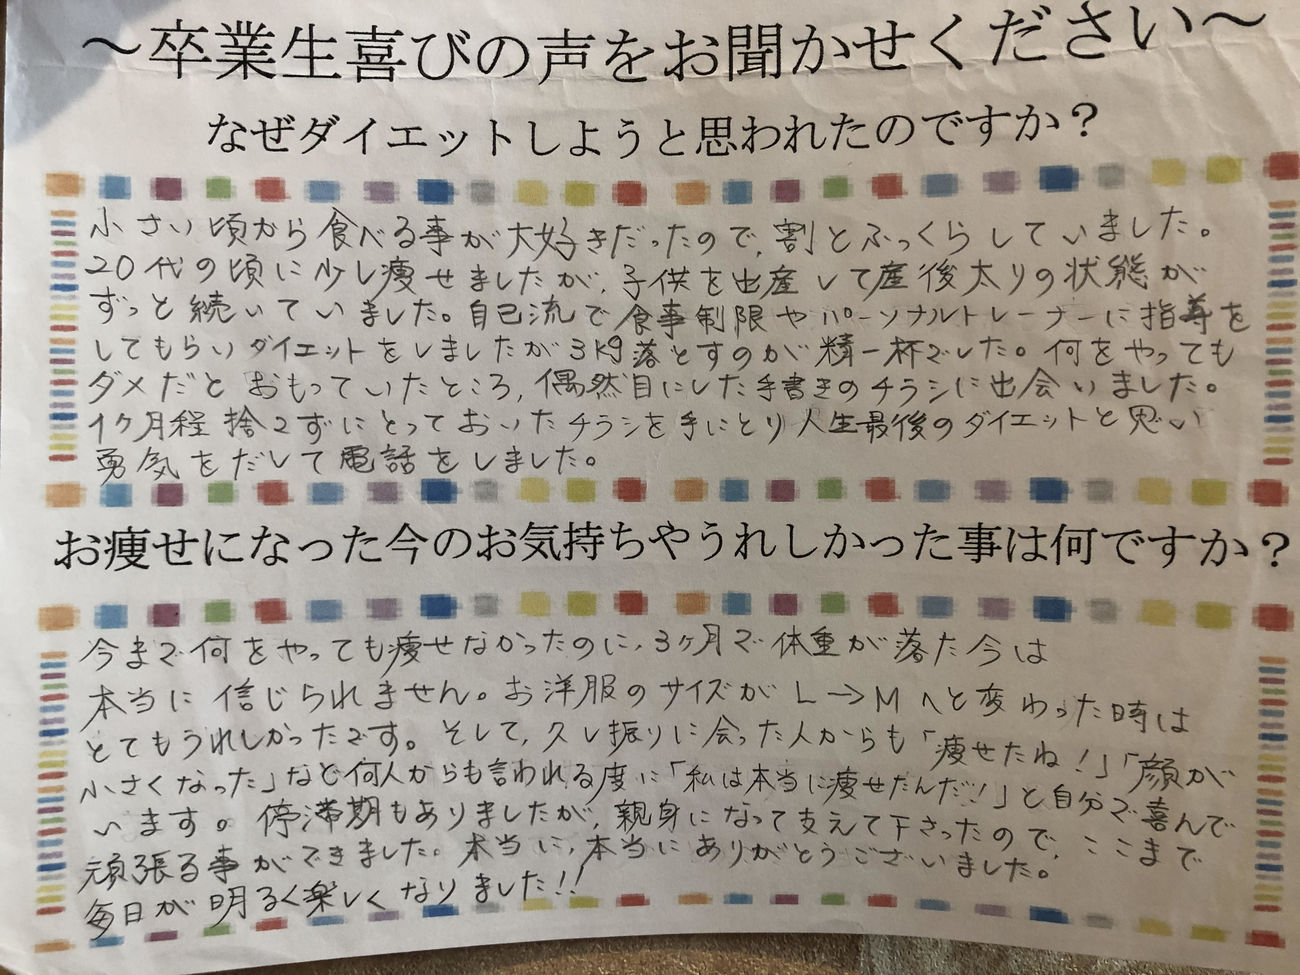 ～卒業生喜びの声をお聞かせください～
なぜダイエットしようと思われたのですか？
小さい頃から食べる事が大好きだったので、割とふっくらしていました。
20代の頃に少し痩せましたが、子供を出産して産後太りの状態が
ずっと続いていました。自己流で食事制限やパーソナルトレーナーに指導を
してもらいダイエットをしましたが3kg落とすのが精一杯でした。何をやっても
ダメだとおもっていたところ、偶然目にした手書きのチラシに出会いました。
1ケ月程捨てずにとっておいたチラシを手にとり人生最後のダイエットと思い
勇気をだして電話をしました。
お痩せになった今のお気持ちやうれしかった事は何ですか？
今まで何をやっても痩せなかったのに、3ヶ月で体重が落た今は
本当に信じられません。お洋服のサイズがL→Mへと変わった時は
とてもうれしかったです。そして、久し振りに会った人からも「痩せたね！」「顔が
小さくなった」など何人からも言われる度に「私は本当に痩せたんだ！」と自分で喜んで
います。停滞期もありましたが、親身になって支えて下さったので、ここまで
頑張る事ができました。本当に、本当にありがとうございました。
毎日が明るく楽しくなりました!!